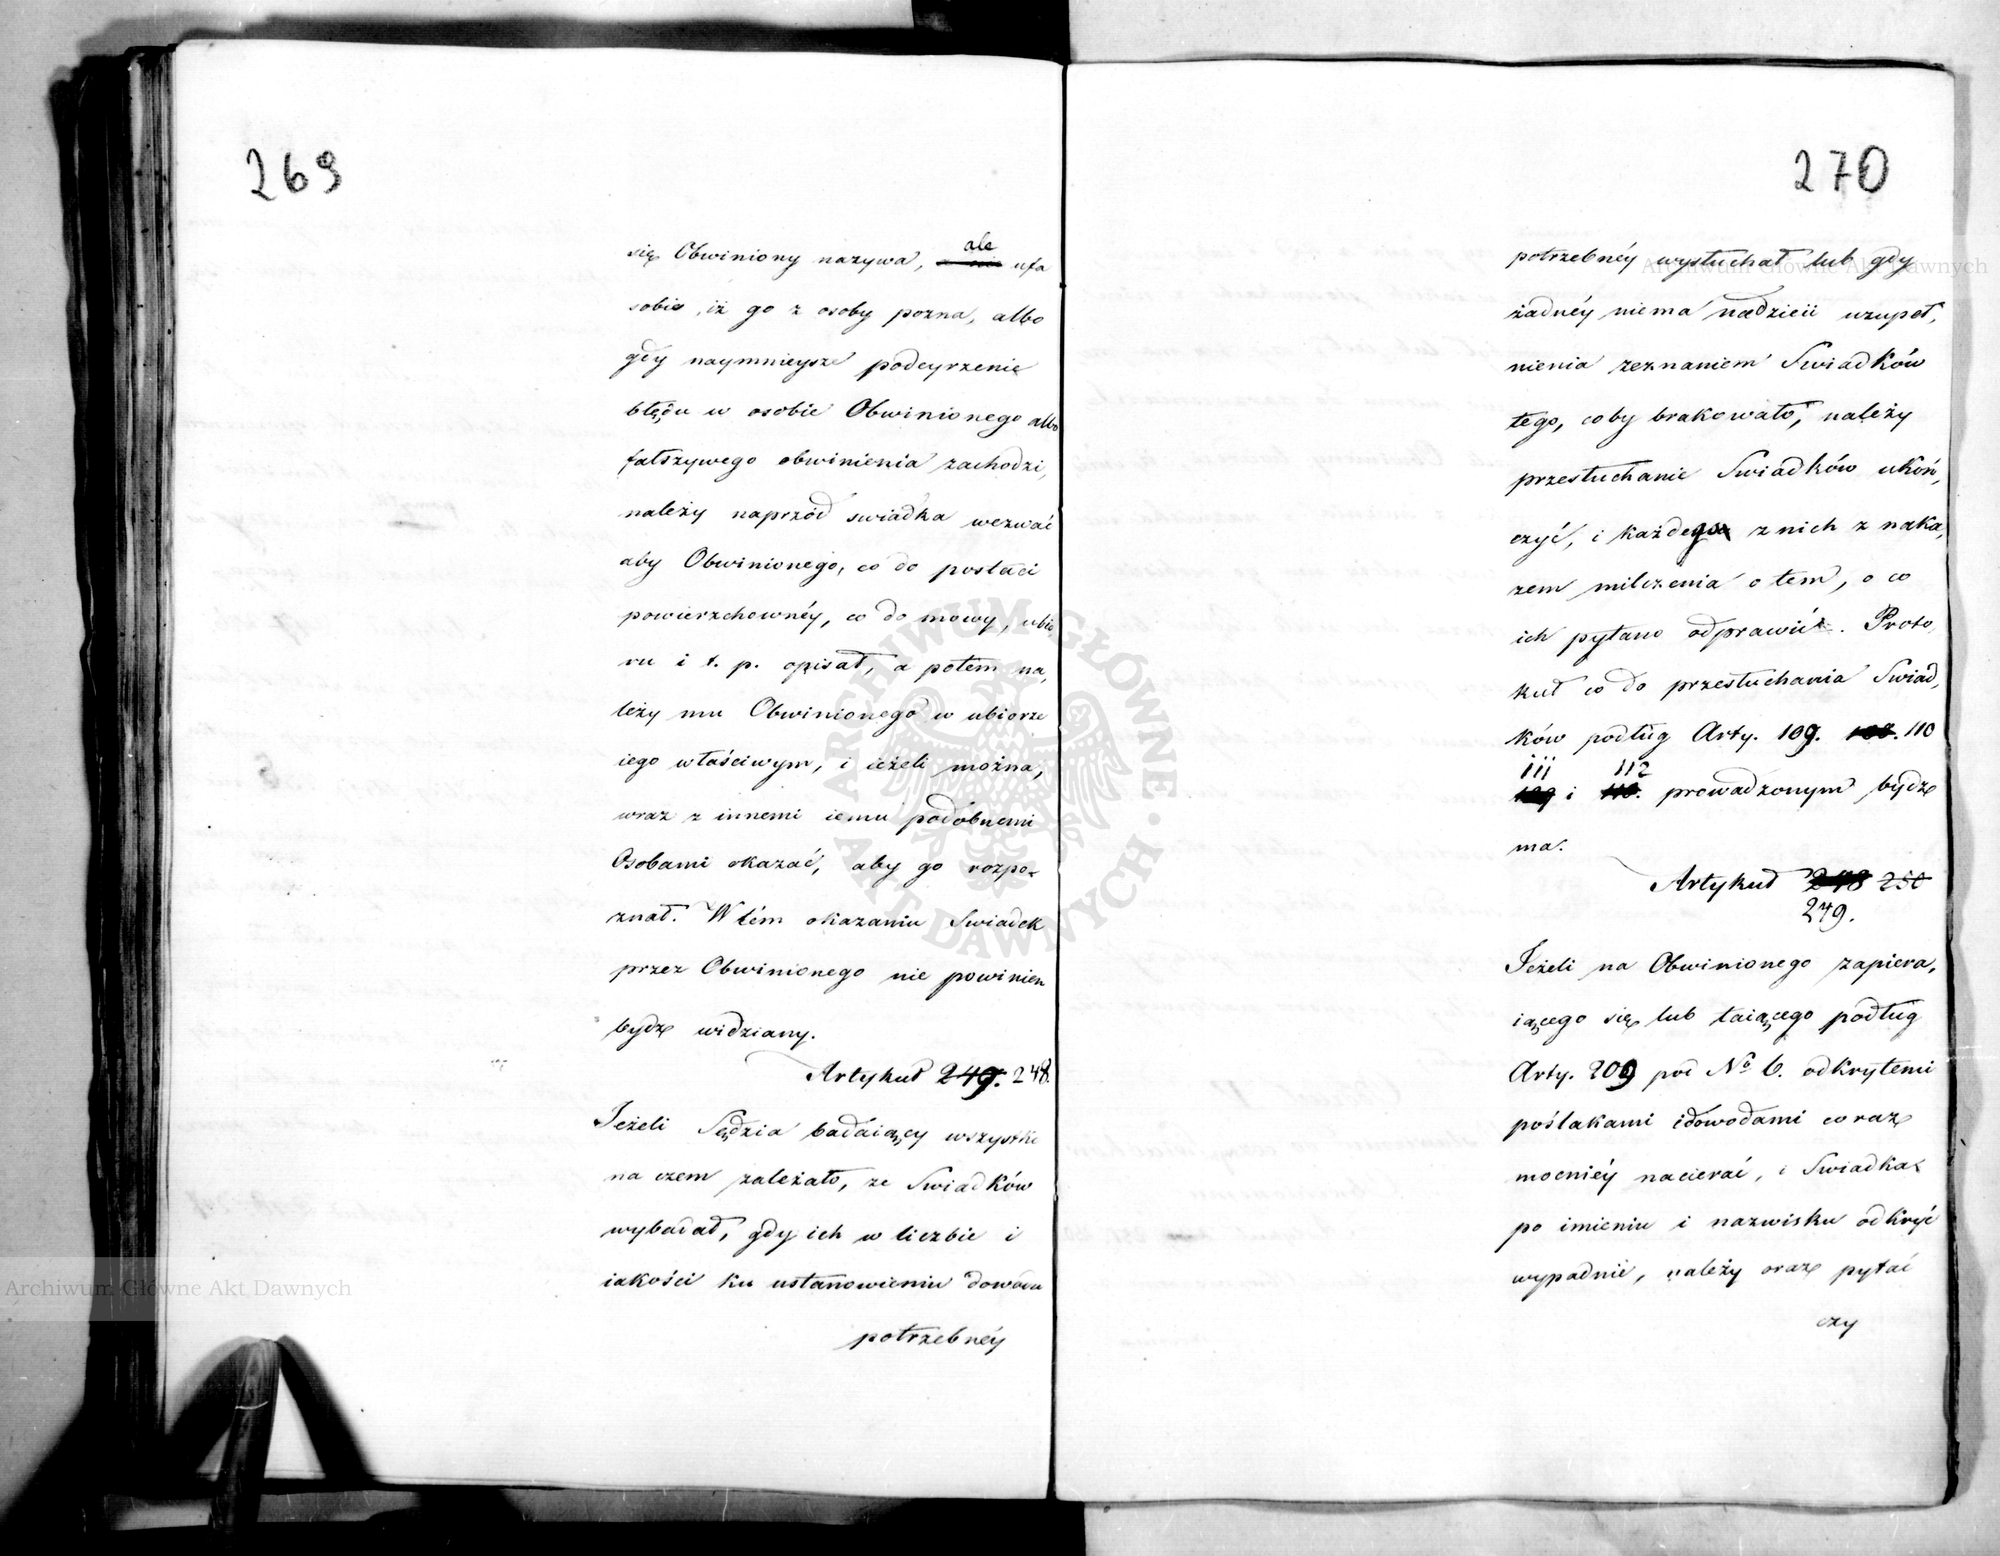 269
się Obwiniony nazywa, ale ufa
sobie, iż go z osoby pozna, albo
gdy naymnieysze podeyrzenie
błędu w osobie Obwinionego albo
fałszywego obwinienia zachodzi,
należy naprzód swiadka wezwać
aby Obwinionego, co do postaci
powierzchownéy, co do mowy, ubio
ru i t. p. opisał, a potem na,
leży mu Obwinionego w ubiorze
iego właściwym, i ieżeli można,
wraz z innemi iemu podobnemi
Osobami okazać, aby go rozpo,
znał. W tém okazaniu Swiadek
przez Obwinionego nie powinien
bydz widziany.
Artykuł 249. 248.
Jeżeli Sędzia badaiący wszystko
na czem zależało, ze Swiadków
wybadał, gdy ich w liczbie i
iakości ku ustanowieniu dowodu
potrzebnéy
270
potrzebnéy wysłuchał lub gdy
żadnéy niema nadzieii uzupeł,
nienia zeznaniem Swiadków
tego, coby brakowało, należy
przesłuchanie Swiadków ukoń,
czyć, i każdego z nich z naka,
zem milczenia o tem, o co
ich pytano odprawić. Proto,
kuł co do przesłuchania Swiad,
ków podług Arty. 109. 108. 110
111 112
109 i 110. prowadzonym bydz
ma.
Artykuł 248 250
249.
Jeżeli na Obwinionego zapiera,
iącego się lub taiącego podług
Arty. 209 pod No 6. odkrytemi
poślakami i dowodami coraz
mocniéy nacierać, i Swiadka
po imieniu i nazwisku odkryć
wypadnie, należy oraz pytać
czy
ARCHIWUM GŁÓWNE AKT DAWNYCH
Archiwum Główne Akt Dawnych
Archiwum Główne Akt Dawnych